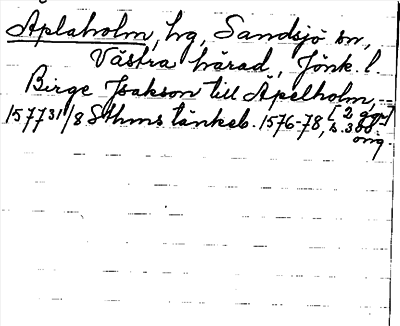 Aplaholm, hg, Sandsjö sn,
Västra härad, Jönk. l.
Birge Isakson till Äpelholm, --
[2 ggr]
1577 31/8 Sthms tänkeb. 1576-78, s. 300
orig.